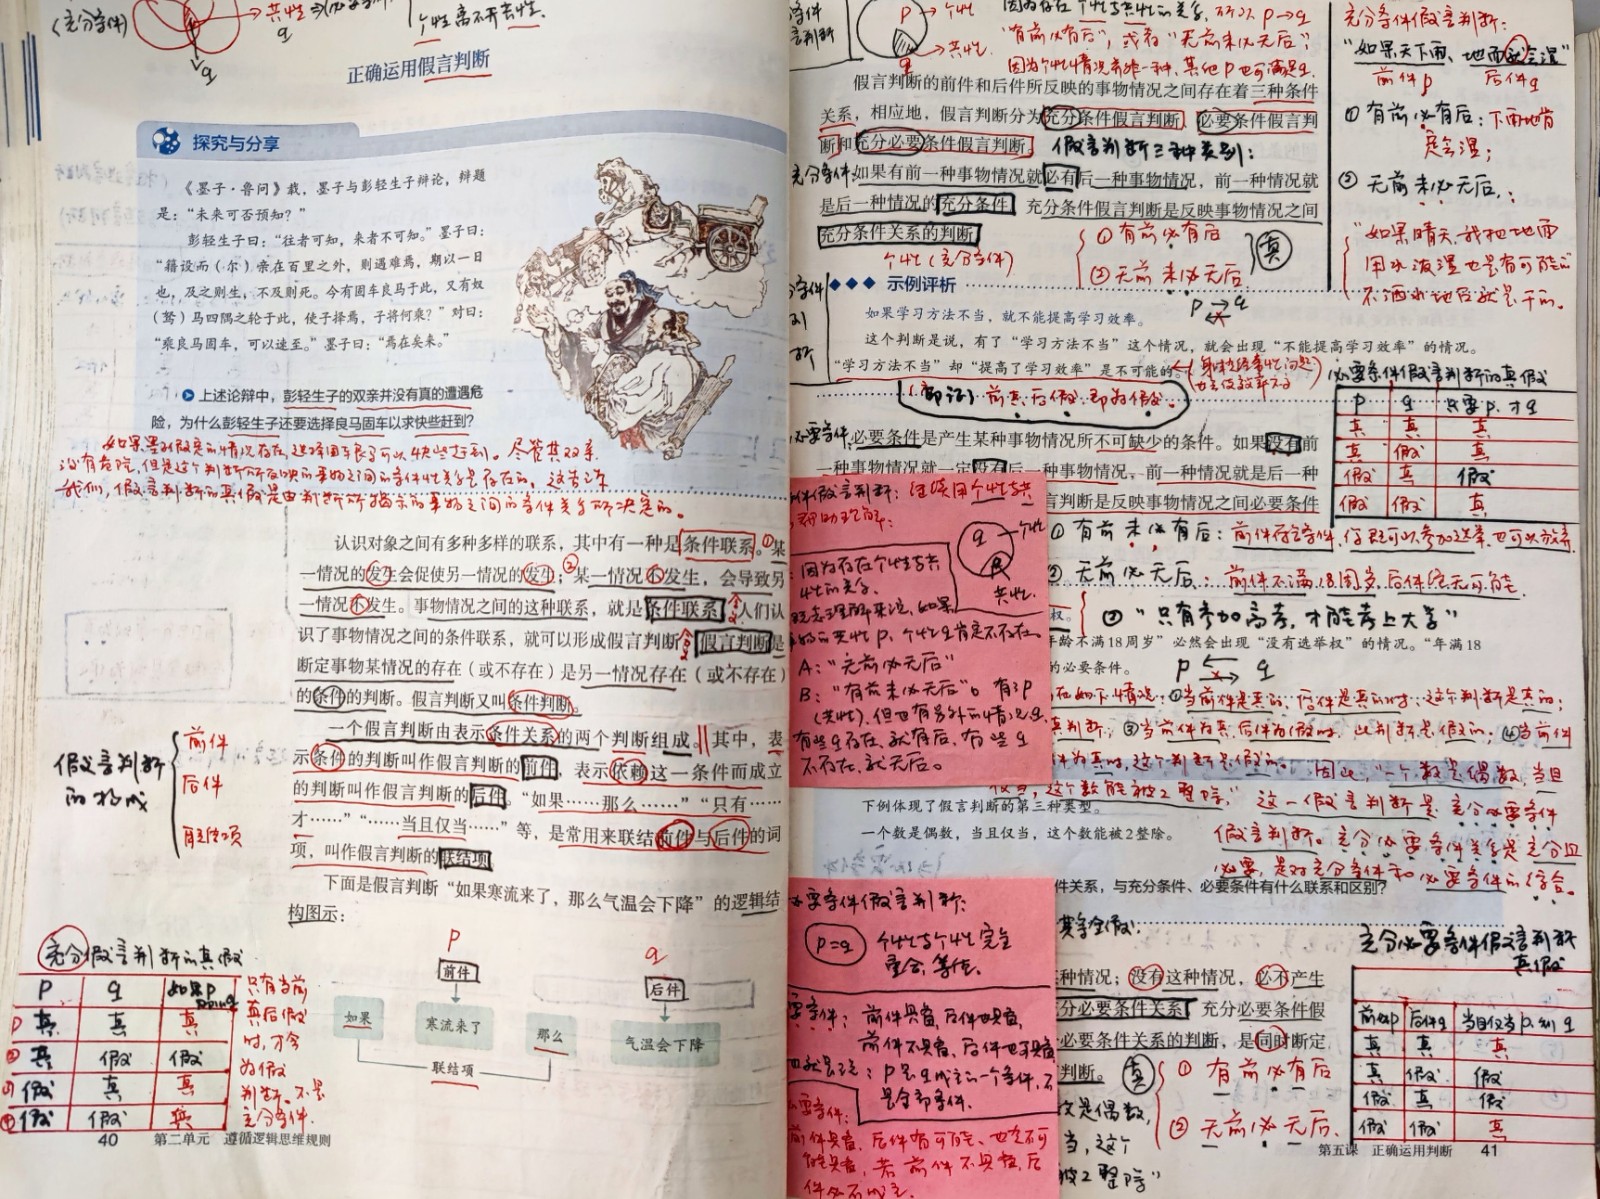 (充分条件)
共性
q
q
个性离不开共性.
正确运用假言判断
探究与分享
《墨子·鲁问》载，墨子与彭轻生子辩论，辩题
是：“未来可否预知？”
彭轻生子曰：“往者可知，来者不可知。”墨子曰：
“籍设而（尔）亲在百里之外，则遇难焉，期以一日
也，及之则生，不及则死。今有固车良马于此，又有奴
（驽）马四隅之轮于此，使子择焉，子将何乘？”对曰：
“乘良马固车，可以速至。”墨子曰：“焉在矣来。”
上述论辩中，彭轻生子的双亲并没有真的遭遇危
险，为什么彭轻生子还要选择良马固车以求快些赶到？
我们，假言判断的真假是由判断所揭示的事物之间的条件关系所决定的。
认识对象之间有多种多样的联系，其中有一种是条件联系。①某
一情况的发生会促使另一情况的发生；②某一情况不发生，会导致另
一情况不发生。事物情况之间的这种联系，就是条件联系。人们认
识了事物情况之间的条件联系，就可以形成假言判断。假言判断是
断定事物某情况的存在（或不存在）是另一情况存在（或不存在）
的条件的判断。假言判断又叫条件判断。
一个假言判断由表示条件关系的两个判断组成。其中，表
示条件的判断叫作假言判断的前件，表示依赖这一条件而成立
的判断叫作假言判断的后件。“如果……那么……”“只有……
才……”“……当且仅当……”等，是常用来联结前件与后件的词
项，叫作假言判断的联结项
假言判断
的构成
前件
后件
联结项
下面是假言判断“如果寒流来了，那么气温会下降”的逻辑结
构图示：
p
q
前件
后件
如果
寒流来了
那么
气温会下降
联结项
充分假言判断的真假
p q 如果p
① 真 真 真
② 真 假 假
③ 假 真 真
④ 假 假 真
只有当前
真后假
时，才会
为假
判断.不是
充分条件.
40 第二单元 遵循逻辑思维规则
p
个性
共性
q
因为存在个性与共性的关系，所以 p→q
“有前必有后”，或者“无前未必无后”；
假言判断的前件和后件所反映的事物情况之间存在着三种条件
关系，相应地，假言判断分为充分条件假言判断、必要条件假言判
断和充分必要条件假言判断。
假言判断三种类别：
如果有前一种事物情况就必有后一种事物情况，前一种情况就
是后一种情况的充分条件。充分条件假言判断是反映事物情况之间
充分条件关系的判断
① 有前必有后
② 无前未必无后
真
个性(充分条件)
p→q
充分条件假言判断：
“如果天下雨，地面就会湿”
前件p 后件q
① 有前必有后：下雨地肯
定会湿；
② 无前未必无后：
“如果晴天，我把地面
用水泼湿也是有可能的”
不洒水地面就是干的。
示例评析
如果学习方法不当，就不能提高学习效率。
这个判断是说，有了“学习方法不当”这个情况，就会出现“不能提高学习效率”的情况。
“学习方法不当”却“提高了学习效率”是不可能的。
即记：前真后假，即为假。
必要条件假言判断的真假
p q 只要p，才q
真 真 真
真 假 真
假 真 假
假 假 真
必要条件是产生某种事物情况所不可缺少的条件。如果没有前
一种事物情况就一定没有后一种事物情况，前一种情况就是后一种
言判断是反映事物情况之间必要条件
① 有前未必有后：前件存在条件，你既可以参加选举，也可以放弃.
② 无前必无后：前件不满18周岁，后件绝无可能.
② “只有参加高考，才能考上大学”
年龄不满18周岁”必然会出现“没有选举权”的情况。“年满18
的必要条件。
p q
件假言判断：继续用个性与共
帮助理解：
q 个性
p 共性
因为存在个性与共
性的关系.
A：“无前必无后”
B：“有前未必无后”。有了p
(共性)，但也有另外的情况q.
有些q存在，就有后，有些q
不存在，就无后。
在如下情况：①当前件是真的，后件是真的时，这个判断是真的；
真判断；③当前件为真，后件为假时，此判断是假的；④当前件
件为真时，这个判断是假的。因此，“一个数是偶数，当且
仅当，这个数能被2整除”这一假言判断是充分必要条件
假言判断。充分必要条件关系是充分且
必要，是对充分条件和必要条件的综合。
下例体现了假言判断的第三种类型。
一个数是偶数，当且仅当，这个数能被2整除。
件关系，与充分条件、必要条件有什么联系和区别？
必要条件假言判断：
p=q
个性与个性完全
重合，等值.
要条件：前件具备，后件也具备，
前件不具备，后件也不具备
也就是说：p是q成立的一个条件，不
是全部条件.
前件具备，后件有可能、也有不可
能具备，若前件不具备，后
件必不成立.
种情况；没有这种情况，必不产生
分必要条件关系。充分必要条件假
必要条件关系的判断，是同时断定
判断。
真
① 有前必有后
② 无前必无后.
数是偶数，
当，这个
被2整除”
充分必要条件假言判断
真假
前件p 后件q 当且仅当p，则q
真 真 真
真 假 假
假 真 假
假 假 真
第五课 正确运用判断 41